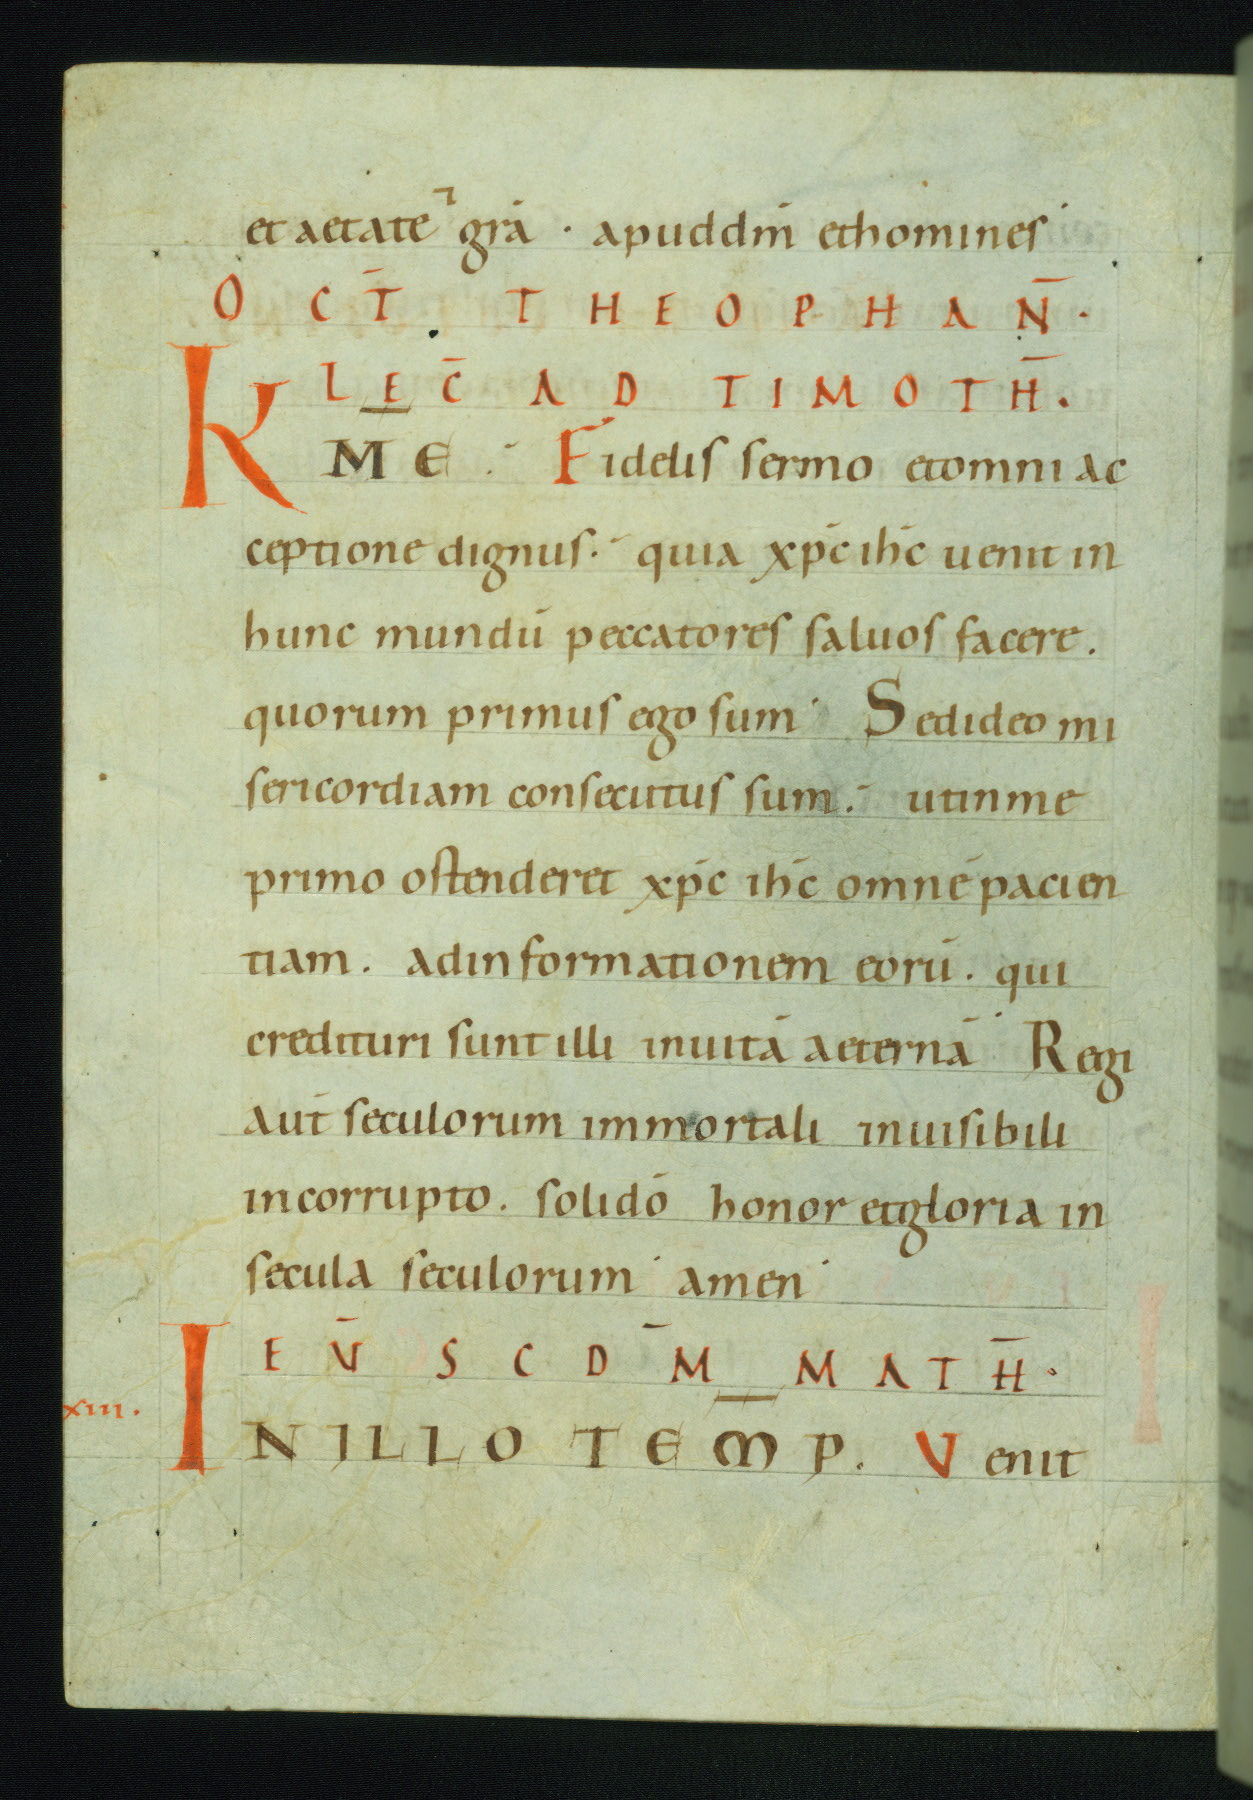 et aetate ⁊ grā · apud dm̄ et homines
OCT̄ THEOPHAN̄.
LEC̄ AD TIMOTH̄.
KME. Fidelis sermo et omni ac
ceptione dignus. quia xp̄c ih̄c uenit in
hunc mundū peccatores saluos facere.
quorum primus ego sum Sed ideo mi
sericordiam consecutus sum. ut in me
primo ostenderet xp̄c ih̄c omnē pacien
tiam. ad informationem eorū. qui
credituri sunt illi in uitā aeternā Regi
aut̄ seculorum immortali inuisibili
incorrupto. soli dō honor et gloria in
secula seculorum amen
EV̄ SCDM̄ MATH̄.
xiii. INILLO TEMP. Venit